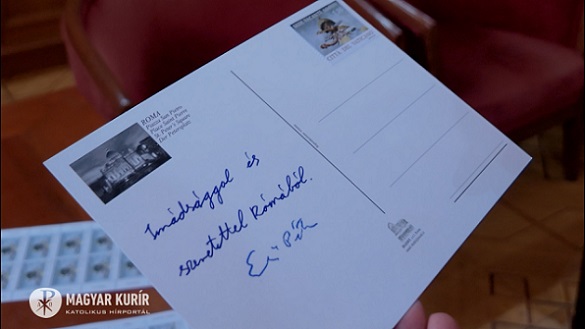 ROMA
Piazza San Pietro
Place Saint Pierre
St. Peter's Square
Der Petersplatz
Imádsággal és
szeretettel Rómából.
Erdő Péter
MAGYAR KURÍR
KATOLIKUS HÍRPORTÁL